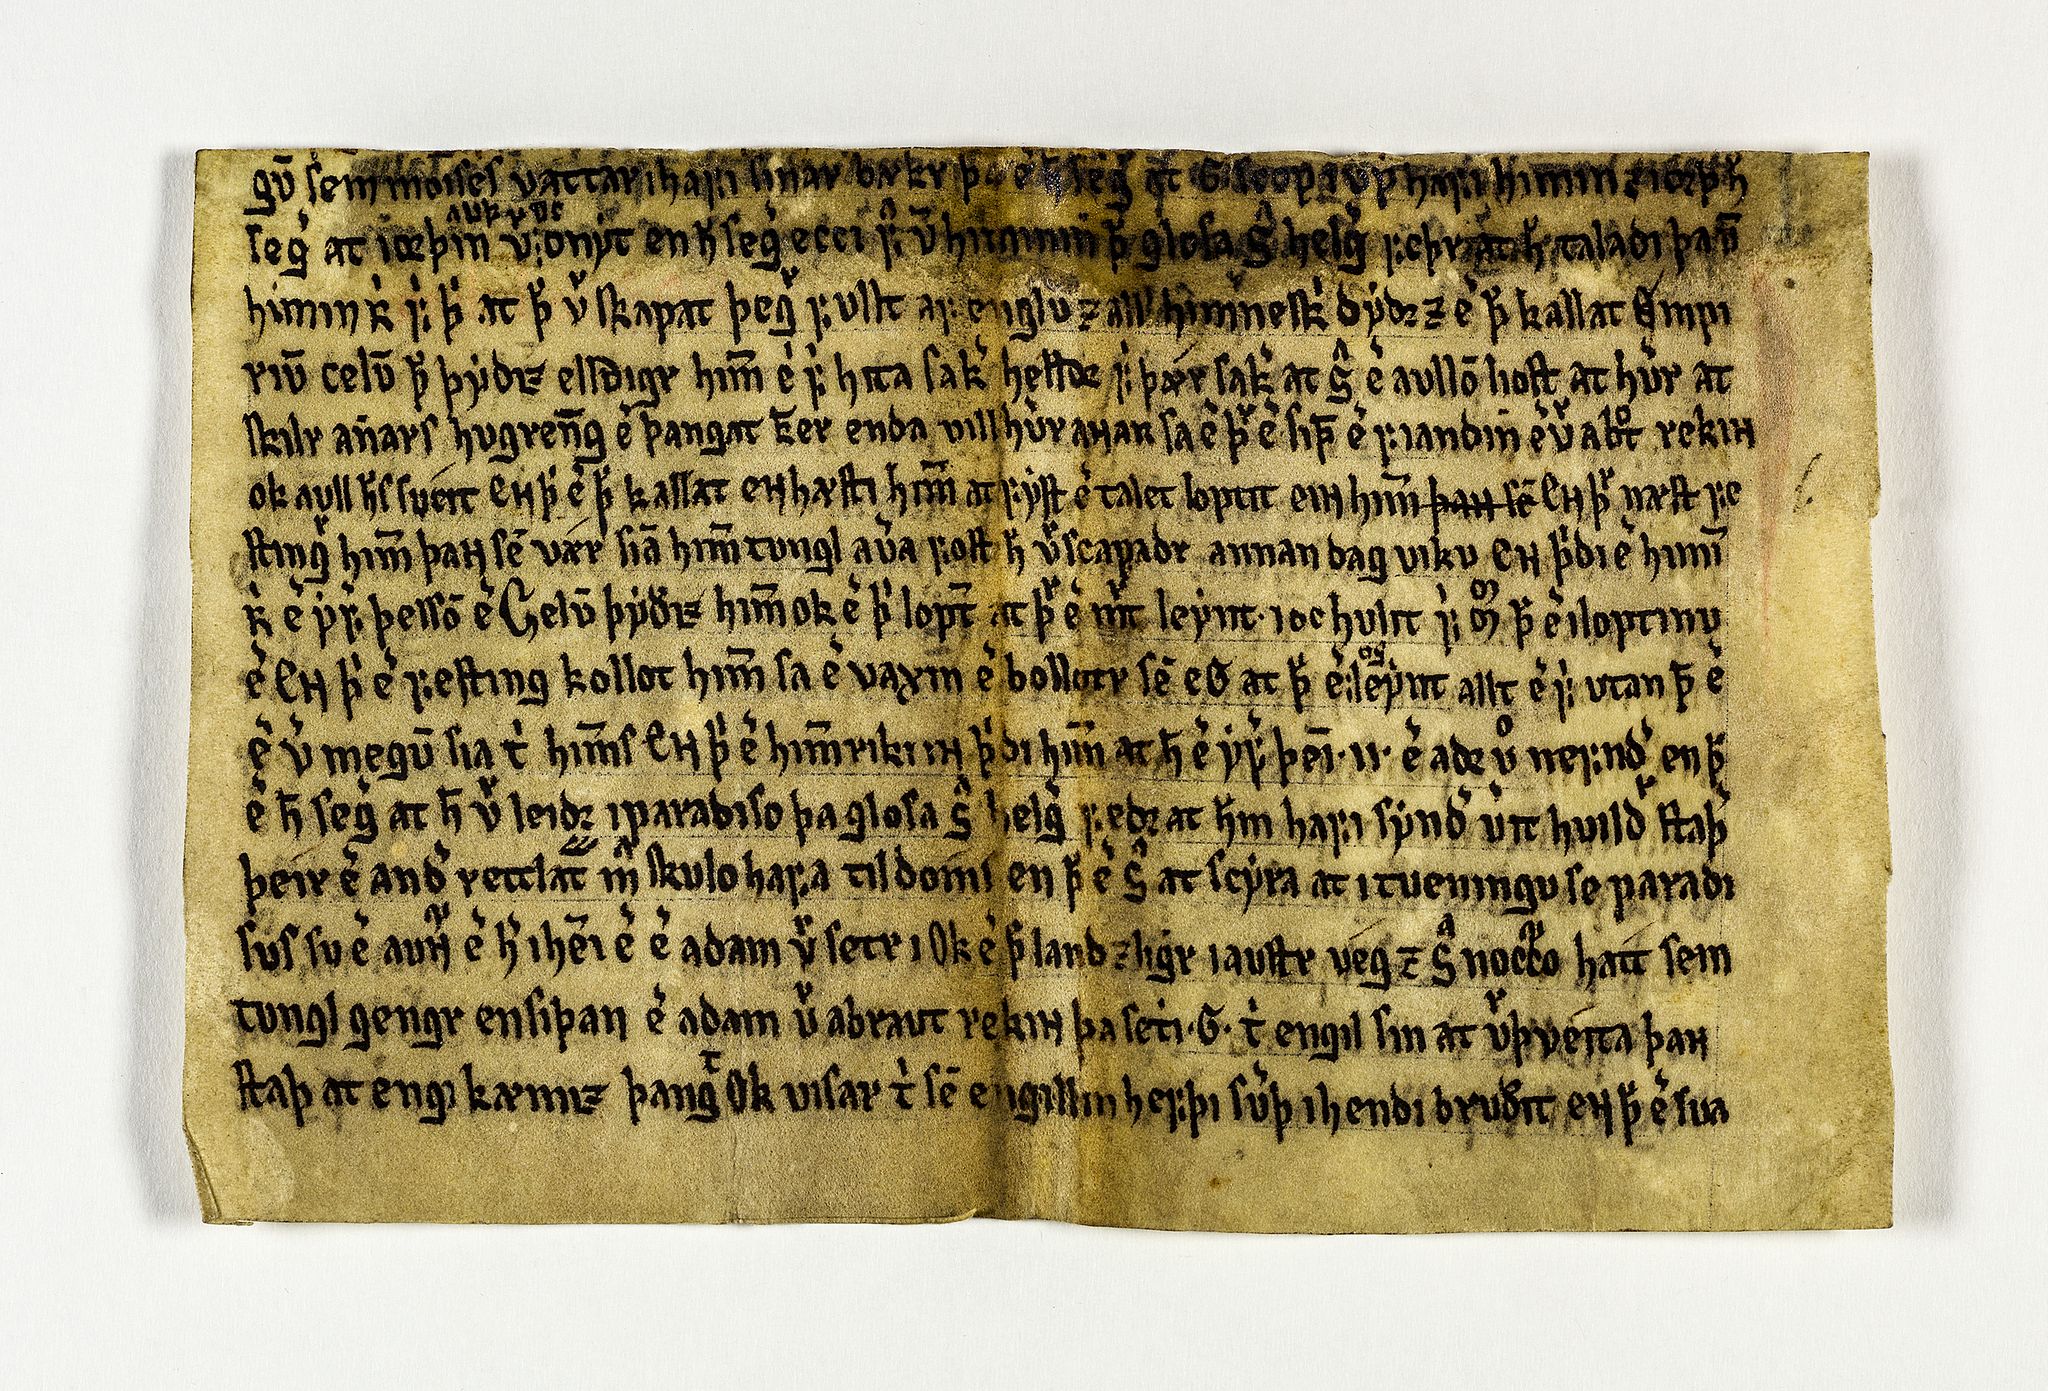 gū sem moises vattar i hafi sinar bækr þ ē h̄ seg᷎ at G scop upphafi himin ⁊ iorþ h̄
auþ ⁊ oc
seg᷎ at iorþin v᷎ onyt en h̄ seg᷎ ecci f᷎ ū himinin þ̄ glosa S̄ helg᷎ f᷎ þui at h̄ taladi þan̄
himin k᷎ f᷎ þ᷎ at þ᷎ v᷎ skapat þeg᷎ fullt af englu ⁊ all himnesk᷎ dyrd ⁊ ē þ̄ kallat Empi
riū celū þ̄ þydiz elldligr him̄ ē f᷎ hita sak᷎ helldr f᷎ þær sak᷎ at S̄ ē avllō liost at hūr at
skilr an̄ars hugren̄g ē þangat k̄er enda vill hūr anar sa ē þ̄ ē siþ̄ ē fiandin ē v᷎ abot rekin
ok avll h̄s sueit En þ᷎ ē þ̄ kallat en hæsti him̄ at fyst ē talet loptit ein him̄ þan sē En þ᷎ næst fe
sting᷎ him̄ þan sē vær siā him̄ tungl ava fost h̄ v᷎ scapadr annan dag viku En þ᷎di ē himī
k᷎ ē yf᷎ þessō ē Celū þydiz him̄ ok ē þ᷎ lopt̄ at þ᷎ ē m̄t leynt · ioc hulit f᷎ m̄ þ̄ ē i loptinu
ē En þ᷎ ē festing kollot him̄ sa ē vaxin ē bollottr sē eG at þ᷎ ē leynt allt ē f᷎ utan þ̄ ē
ē v᷎ megū sia t᷎ him̄s En þ᷎ ē him̄riki in þ᷎di him̄ at h̄ ē yf᷎ þeī · ii · ē adr v᷎ nefnd᷎ en þ᷎
ē h̄ seg᷎ at h̄ v᷎ leidr i paradiso þa glosa S̄ helg᷎ fedr at h̄m hafi synd᷎ v᷎it huild᷎ staþ᷎
þeir ē and᷎ rettlat m̄ skulo hafa til doms en þ᷎ ē S̄ at scyra at i tueningu se paradi
sus su ē aun̄ ē h᷎ i heī ē ē adam v᷎ settr i Ok ē þ̄ land ⁊ ligr i austr veg ⁊ S̄ nocco hatt sem
tungl gengr en siþan ē adam v᷎ abraut rekin þa seti · G · t᷎ engil sin at v᷎þueita þan
staþ at engi kæmiz þang᷎ Ok visar t᷎ sē engillin hefþi su᷎þ i hendi brudit en þ̄ ē sua